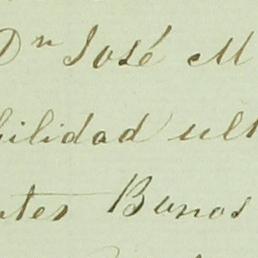 Dn José M
bilidad ult
ntes Bunos